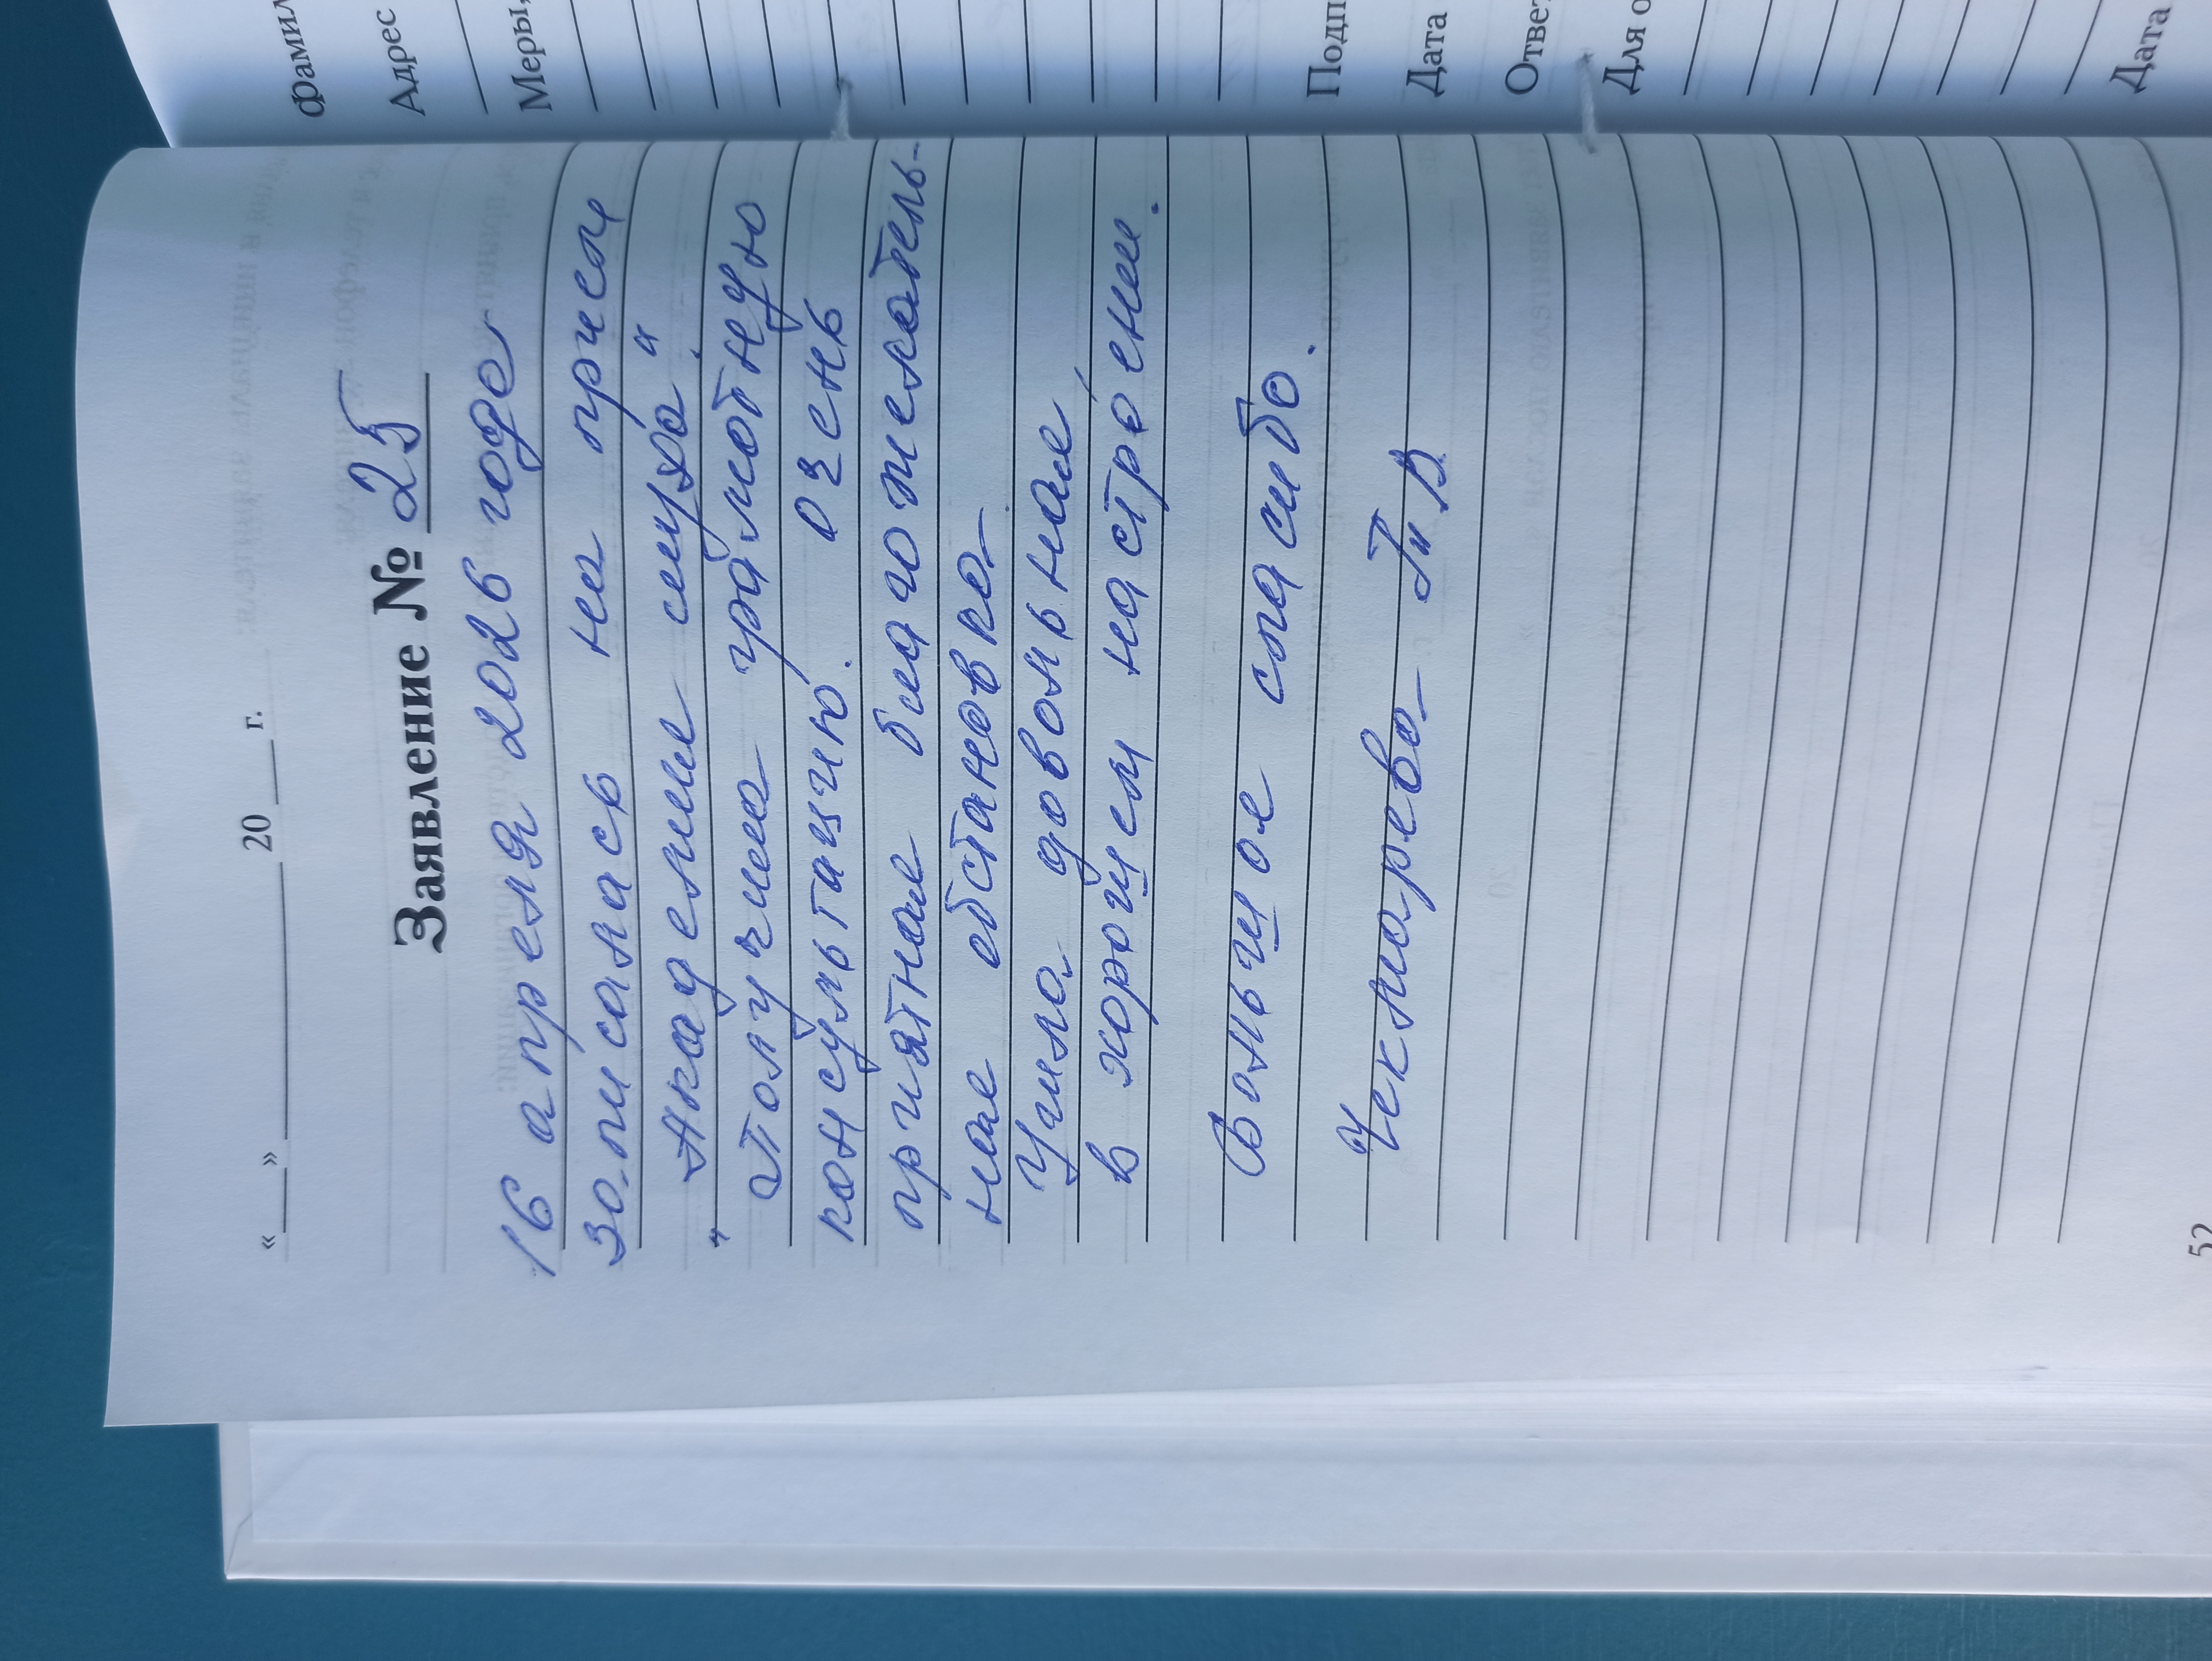 « » 20 г.
Заявление № 25
16 апреля 2026 года
записалась на прием
"Академие слуха".
Получила грамотную
консультацию. очень
приятная благожелатель-
ная обстановка.
Ушла довольная,
в хорошем настроении.
Большое спасибо.
Чекмарева Г. В.
52
фамил
Адрес
Меры,
Подп
Дата
Ответ
Для о
Дата